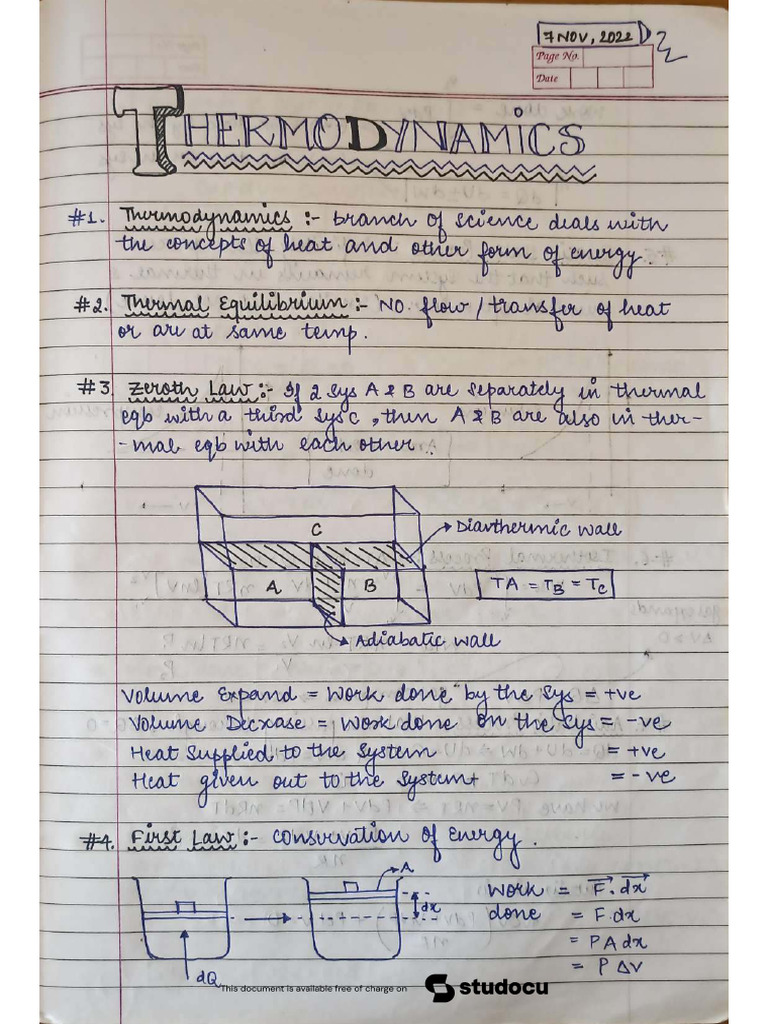 7 NOV, 2022
Page No.
Date
THERMODYNAMICS
#1. Thermodynamics :- branch of science deals with
the concepts of heat and other form of energy.
#2. Thermal Equilibrium :- NO. flow / transfer of heat
or are at same temp.
#3 Zeroth Law :- If 2 sys A & B are separately in thermal
eqb with a third sys C, then A & B are also in ther-
-mal eqb with each other.
C
Diavthermic wall
A
B
TA = TB = TC
Adiabatic wall
Volume Expand = Work done by the sys = +ve
Volume Decrease = Work done on the sys = -ve
Heat Supplied to the System = +ve
Heat given out to the System = -ve
#4. First Law :- Conservation of Energy.
A
dx
dQ
Work = F. dx
done = F. dx
= PA dx
= P ΔV
This document is available free of charge on
studocu